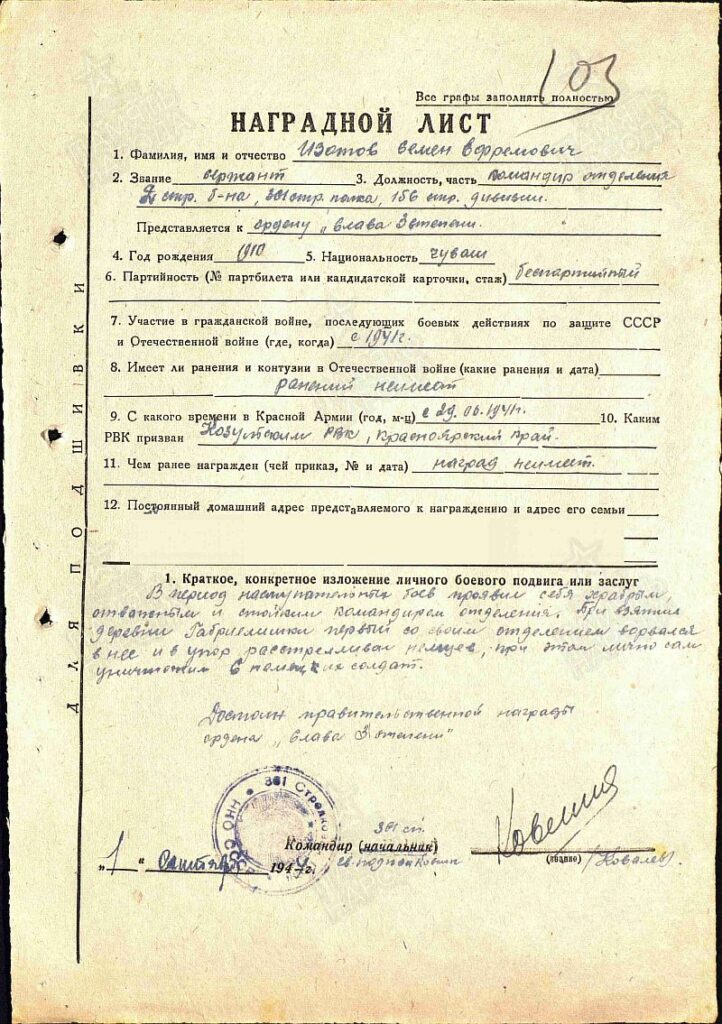 103
Все графы заполнять полностью
НАГРАДНОЙ ЛИСТ
1. Фамилия, имя и отчество Изотов Семен Ефремович
2. Звание сержант 3. Должность, часть командир отделения
2 стр. б-на, 361 стр. полка, 156 стр. дивизии.
Представляется к ордену „Слава 3 степени.
4. Год рождения 1910 5. Национальность чуваш
6. Партийность (№ партбилета или кандидатской карточки, стаж) беспартийный
7. Участие в гражданской войне, последующих боевых действиях по защите СССР
и Отечественной войне (где, когда) с 1941г.
8. Имеет ли ранения и контузии в Отечественной войне (какие ранения и дата)
ранений неимеет
9. С какого времени в Красной Армии (год, м-ц) с 29.06.1941г. 10. Каким
РВК призван Козульским РВК, Красноярский край.
11. Чем ранее награжден (чей приказ, № и дата) наград неимеет.
12. Постоянный домашний адрес представляемого к награждению и адрес его семьи
ДЛЯ ПОДШИВКИ
1. Краткое, конкретное изложение личного боевого подвига или заслуг
В период наступательных боев проявил себя храбрым,
отважным и стойким командирем отделения. При взятии
деревни Габриелишки первый со своим отделением ворвался
в нее и в упор расстреливал немцев, при этом лично сам
уничтожил 6 немецких солдат.
Достоин правительственной награды
ордена „Слава 3 степени"
НКО СССР 361 Стрелковый
361 сп.
Командир (начальник)
гв. подполковник
(звание) /Ковалев/.
„1" Сентября 1944г.